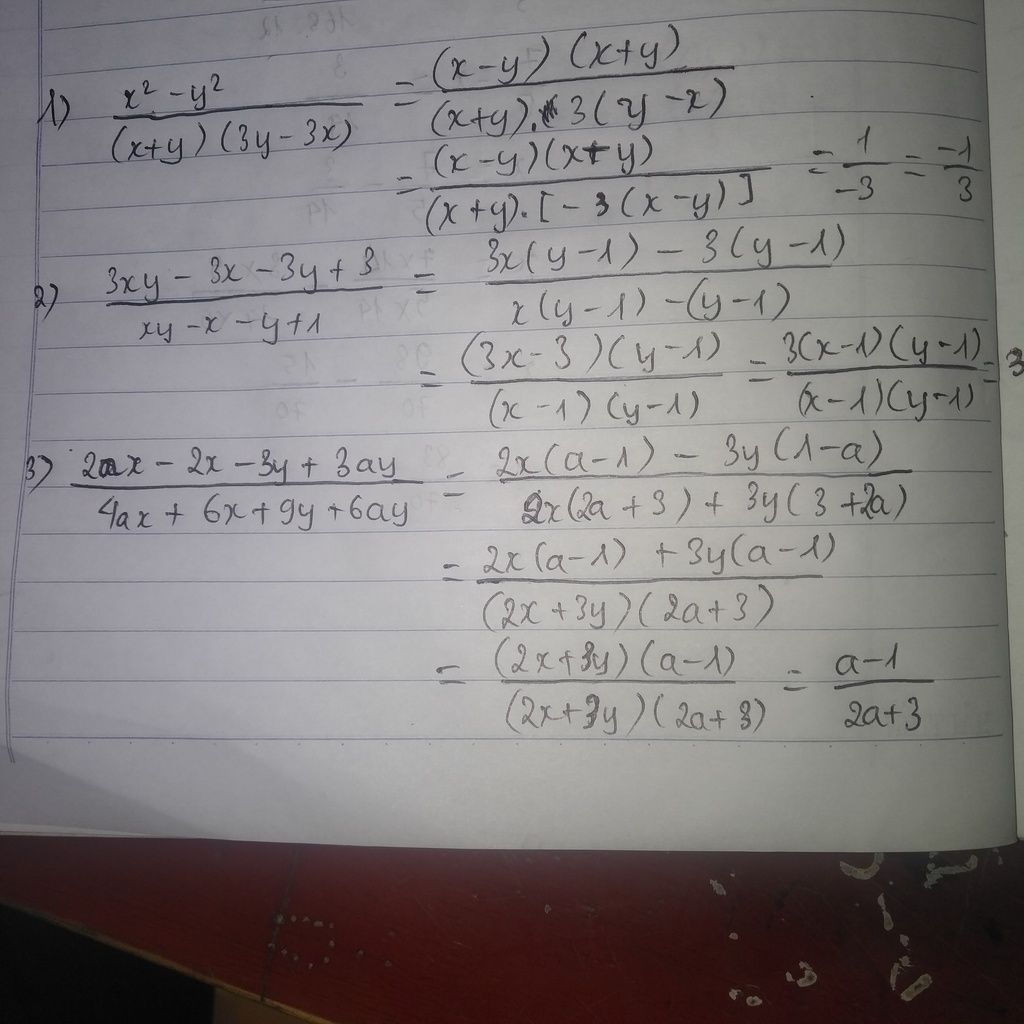 1) x² - y² / (x+y)(3y - 3x) = (x-y)(x+y) / (x+y).3(y-x)
= (x-y)(x+y) / (x+y).[-3(x-y)] = 1/-3 = -1/3
2) 3xy - 3x - 3y + 3 / xy - x - y + 1 = 3x(y-1) - 3(y-1) / x(y-1) - (y-1)
= (3x-3)(y-1) / (x-1)(y-1) = 3(x-1)(y-1) / (x-1)(y-1) = 3
3) 2ax - 2x - 3y + 3ay / 4ax + 6x + 9y + 6ay = 2x(a-1) - 3y(1-a) / 2x(2a+3) + 3y(3+2a)
= 2x(a-1) + 3y(a-1) / (2x+3y)(2a+3)
= (2x+3y)(a-1) / (2x+3y)(2a+3) = a-1 / 2a+3